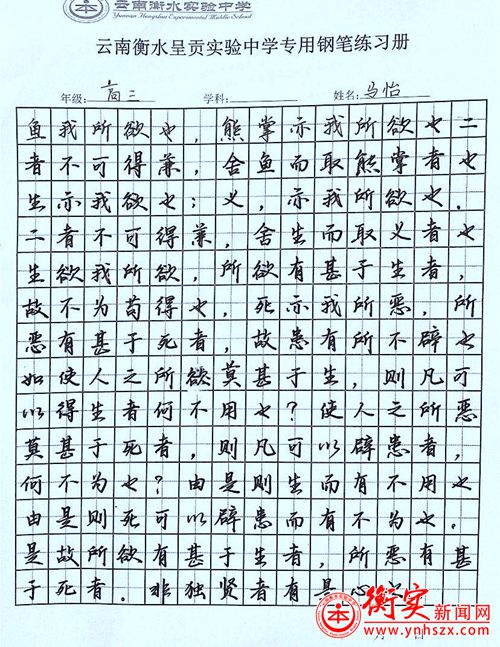 云南衡水实验中学
Yunnan Hengshui Experimental Middle School
云南衡水呈贡实验中学专用钢笔练习册
年级:高三 学科: 姓名:马怡
鱼我所欲也，熊掌亦我所欲也二
者不可得兼，舍鱼而取熊掌者也
生亦我欲也；义，亦我所欲也．
二者不可得兼，舍生而取义者也
生欲我所欲，所欲有甚于生者，
故不为苟得也，死亦我所恶，所
恶有甚于死者，故患有所不辟也
如使人之所欲莫甚于生，则凡可
以得生者何不用也？使人之所恶
莫甚于死者，则凡可以辟患者，
何不为也？由是则生而有不用也
由是则死可以辟患而有不为也．
是故所欲有甚于生者，所恶有甚
于死者．非独贤者有是心
衡实新闻网
www.ynhszx.com